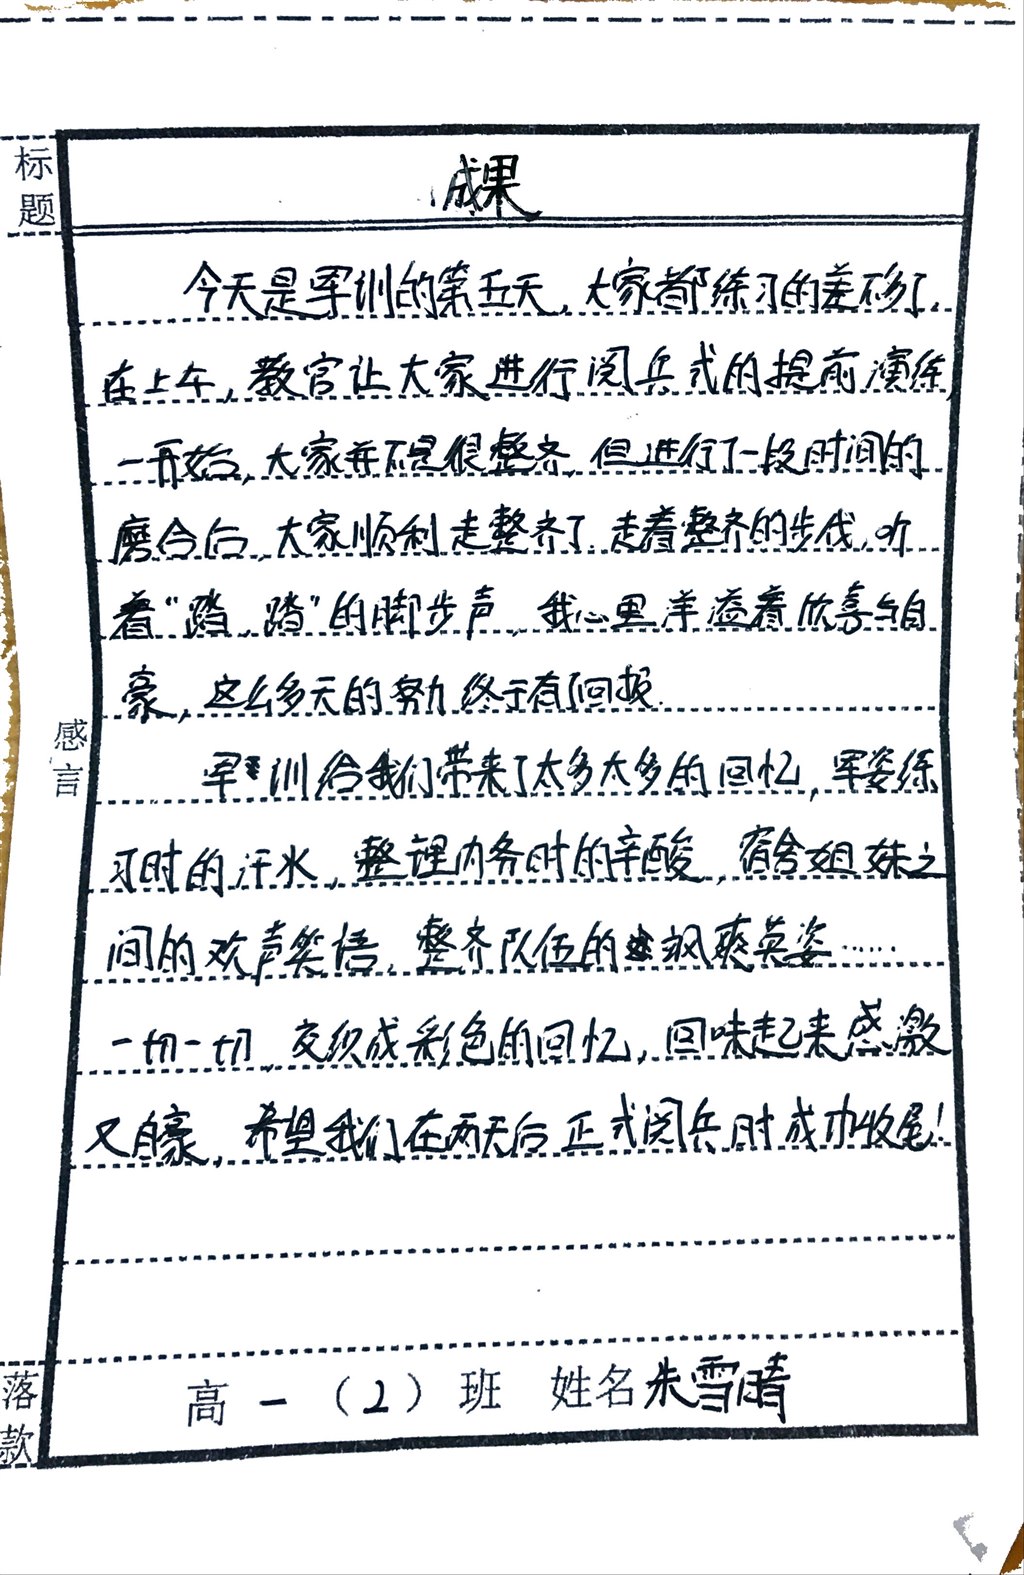 标题
成果
今天是军训的第五天,大家都练习的差不多了。
在上午,教官让大家进行阅兵式的提前演练,
一开始,大家并不是很整齐,但进行了一段时间的
磨合后,大家顺利走整齐了,走着整齐的步伐,听
着“踏、踏”的脚步声,我心里洋溢着欣喜与自
豪,这么多天的努力终于有了回报.
感言
军训给我们带来了太多太多的回忆,军姿练
习时的汗水,整理内务时的辛酸,宿舍姐妹之
间的欢声笑语,整齐队伍的飒爽英姿……
一切一切,交织成彩色的回忆,回味起来感激
又自豪,希望我们在两天后正式阅兵时成功收尾!
落款
高一(2)班 姓名朱雪晴